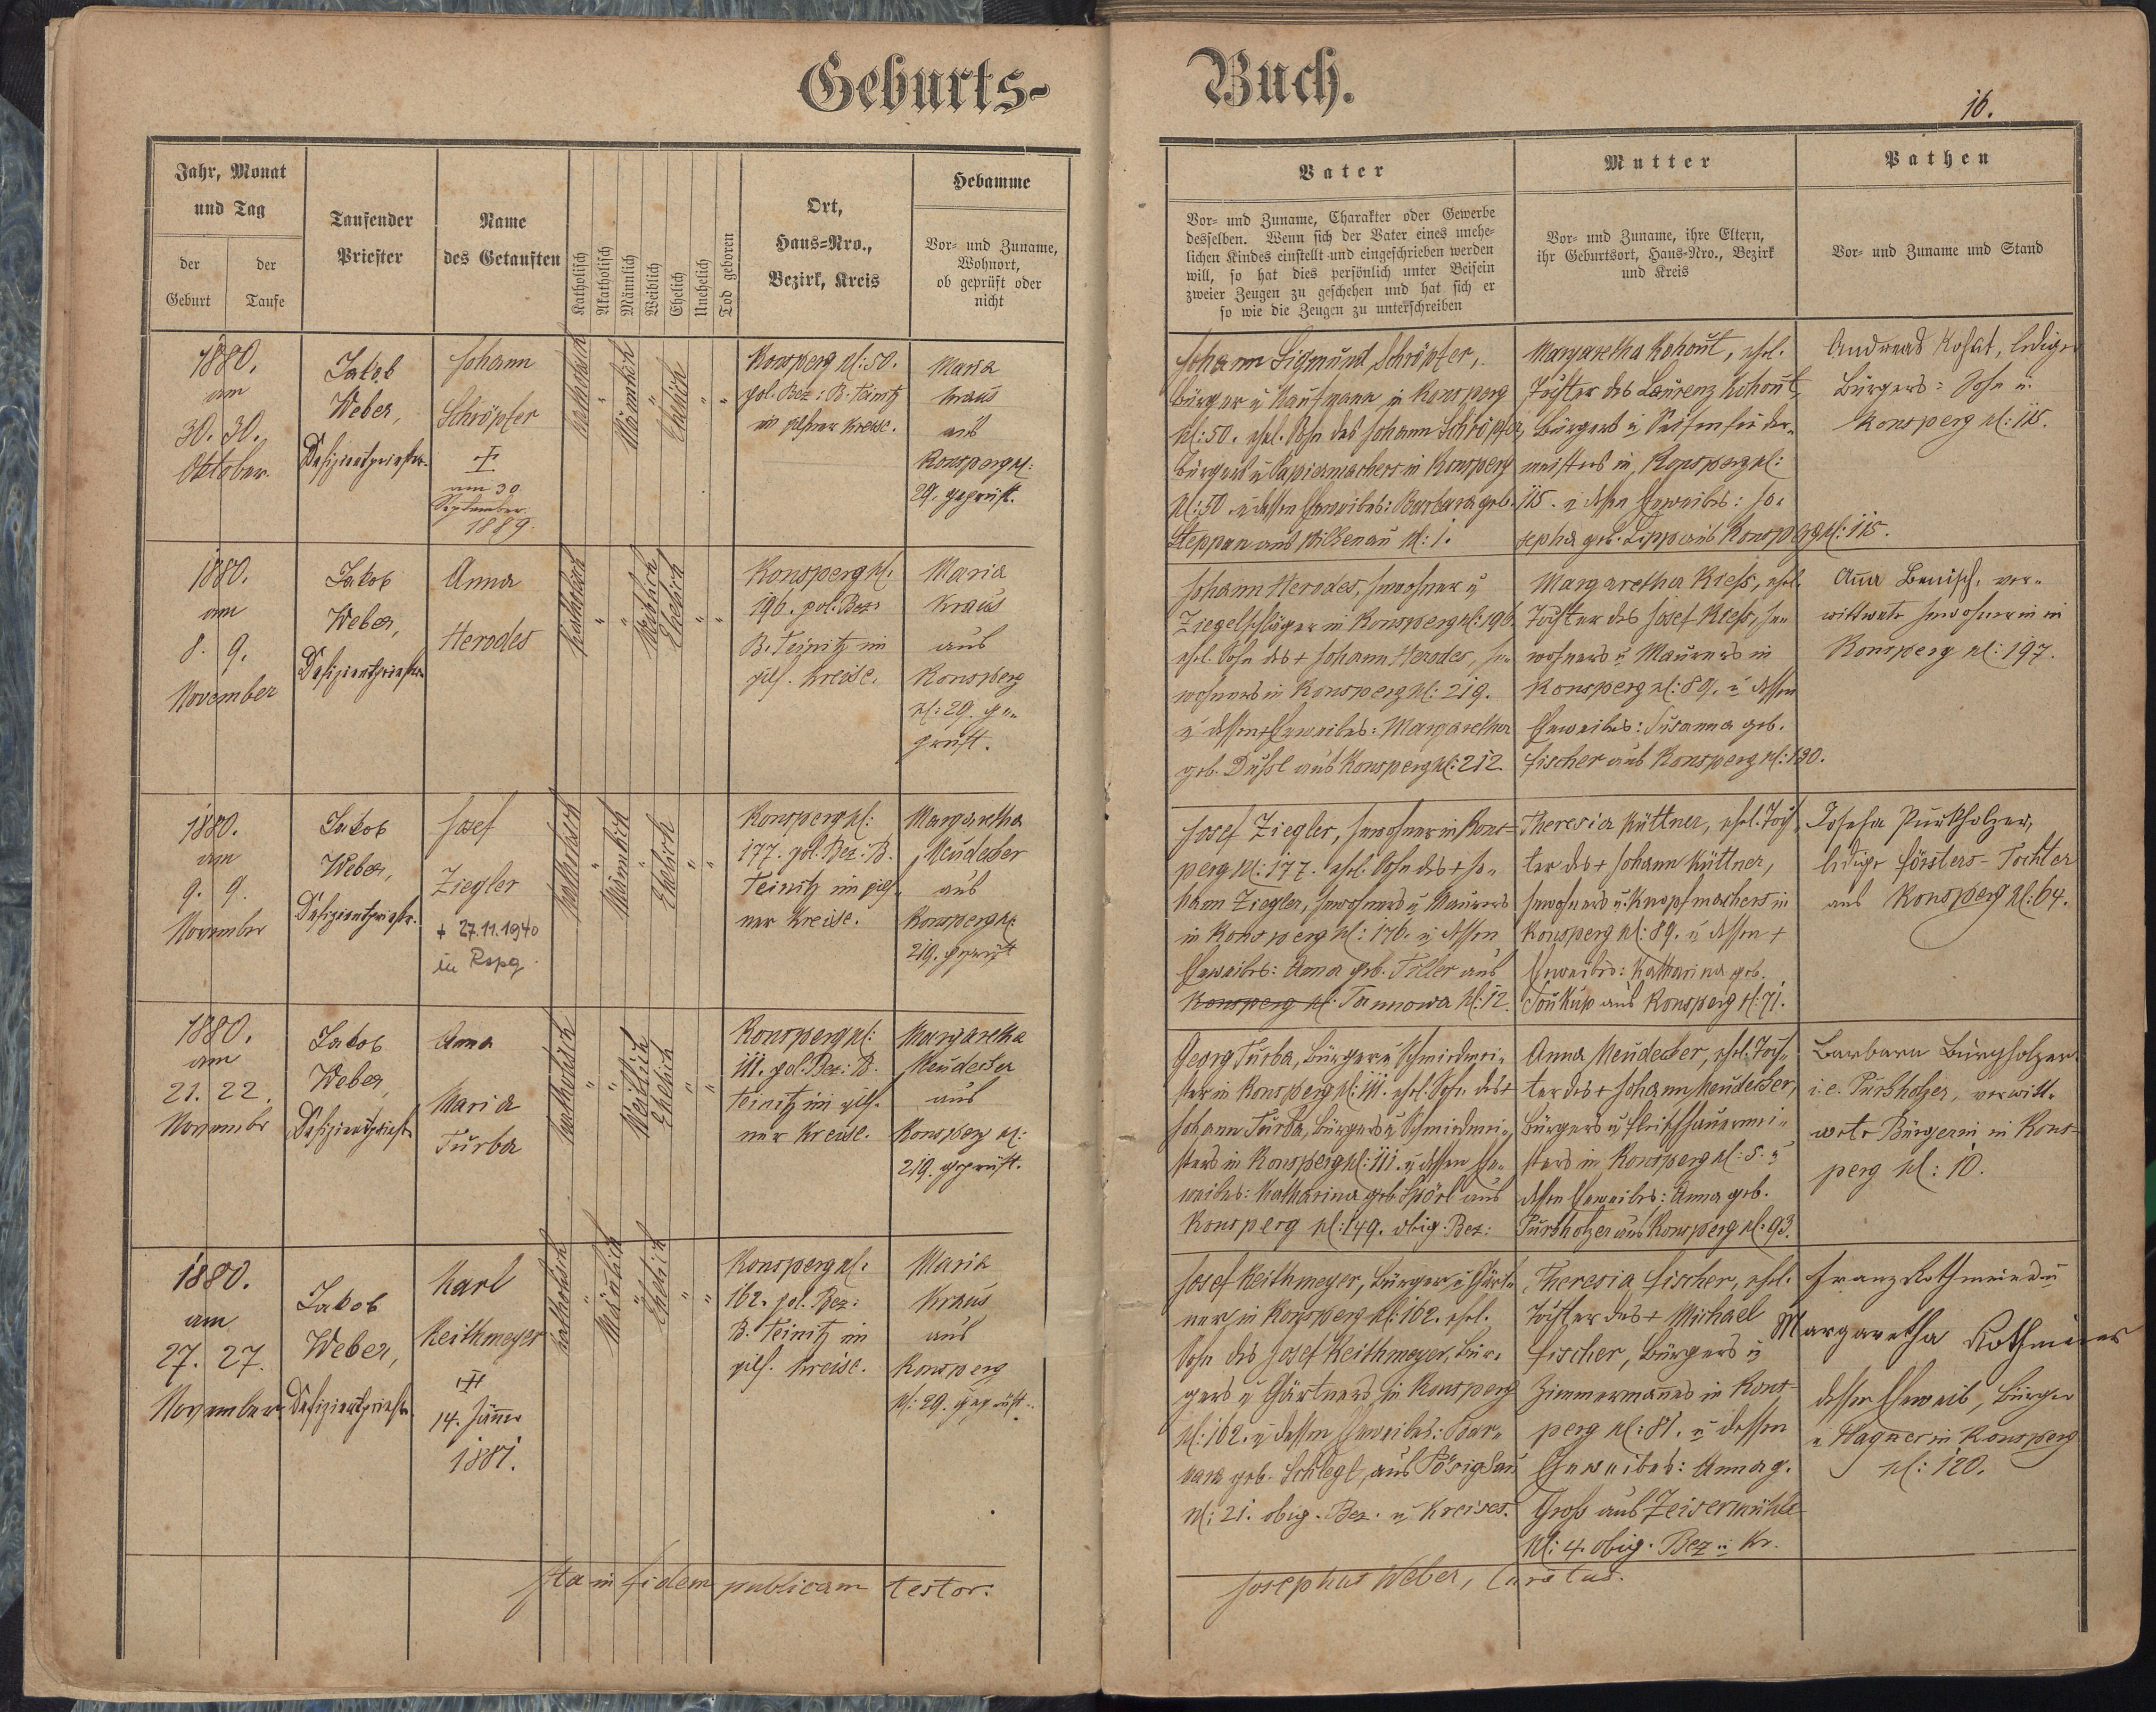 Geburts-
Buch.
16.
Jahr, Monat
und Tag
der
Geburt
der
Taufe
Taufender
Priester
Name
des Getauften
Katholisch
Akatholisch
Männlich
Weiblich
Ehelich
Unehelich
Tod geboren
Ort,
Haus-Nro.,
Bezirk, Kreis
Hebamme
Vor- und Zuname,
Wohnort,
ob geprüft oder
nicht
Vater
Vor- und Zuname, Charakter oder Gewerbe
desselben. Wenn sich der Vater eines unehe-
lichen Kindes einstellt und eingeschrieben werden
will, so hat dies persönlich unter Beisein
zweier Zeugen zu geschehen und hat sich er
so wie die Zeugen zu unterschreiben
Mutter
Vor- und Zuname, ihre Eltern,
ihr Geburtsort, Haus-Nro., Bezirk
und Kreis
Pathen
Vor- und Zuname und Stand
1880.
am
30. 30.
Oktober.
Jakob
Weber,
Defizientpriester.
Johann
Schröpfer
am 30.
September
1889.
Katholisch
Männlich
Ehelich
Konsperg N: 50.
pol. Bez: B. Teinitz
im pilsner Kreise.
Maria
Kraus
aus
Konsperg N:
29. geprüft.
Johann Sigmund Schröpfer,
Bürger u Kaufmann in Konsperg
N: 50. ehel. Sohn des Johann Schröpfer,
Bürgers u Papiermachers in Konsperg
N: 50. u dessen Eheweibes: Barbara geb.
Steppan aus Wilkenau N: 1.
Margaretha Kohout, ehel.
Tochter des Laurenz Kohout,
Bürgers u Seifensieder-
meisters in Konsperg N:
115. u dessen Eheweibes: Jo-
sepha geb. Lipp aus Konsperg N: 115.
Andreas Kohut, lediger
Bürgers-Sohn v.
Konsperg N: 115.
1880.
am
8. 9.
November
Jakob
Weber,
Defizientpriester
Anna
Herodes
Katholisch
Weiblich
Ehelich
Konsperg N.
196. pol. Bez:
B. Teinitz im
pils. Kreise.
Maria
Kraus
aus
Konsperg
N: 29. ge-
prüft.
Johann Herodes, Inwohner u
Ziegelschläger in Konsperg N: 196.
ehel. Sohn des + Johann Herodes, In-
wohners in Konsperg N: 219.
u dessen + Eheweibes: Margaretha
geb. Dußl aus Konsperg N: 212
Margaretha Kieß, ehel.
Tochter des Josef Kieß, In-
wohners u Maurers in
Konsperg N: 89. u dessen
Eheweibes: Susanna geb.
Fischer aus Konsperg N: 190.
Anna Benisch, ver-
wittwete Inwohnerin in
Konsperg N: 197.
1880.
am
9. 9.
November
Jakob
Weber,
Defizientpriester.
Josef
Ziegler
+ 27.11.1940
in Rspg.
Katholisch
Männlich
Ehelich
Konsperg N:
177. pol. Bez: B.
Teinitz im pils-
ner Kreise.
Margaretha
Neudecker
aus
Konsperg N.
219. geprüft
Josef Ziegler, Inwohner in Kons-
perg N: 177. ehel. Sohn des + Jo-
hann Ziegler, Inwohners u Maurers
in Konsperg N: 176. u dessen
Eheweibes: Anna geb. Tiller aus
Konsperg N: Tannowa N: 12.
Theresia Küttner, ehel. Toch-
ter des + Johann Küttner,
Inwohners u. Knopfmachers in
Konsperg N: 89. u dessen +
Eheweibes: Katharina geb.
Soukup aus Konsperg N: 71.
Josefa Purkholzer,
ledige Försters-Tochter
aus Konsperg N: 64.
1880.
am
21. 22.
November
Jakob
Weber,
Defizientpriester
Anna
Maria
Turba
Katholisch
Weiblich
Ehelich
Konsperg N:
111. pol. Bez: B.
Teinitz im pils-
ner Kreise.
Margaretha
Neudecker
aus
Konsperg N:
219. geprüft.
Georg Turba, Bürger u Schmiedmei-
ster in Konsperg N: 111. ehel. Sohn des +
Johann Turba, Bürgers u Schmiedmei-
sters in Konsperg N: 111. u dessen Ehe-
weibes: Katharina geb. Spörl aus
Konsperg N: 149. obig. Bez:
Anna Neudecker, ehel. Toch-
ter des + Johann Neudecker,
Bürgers u Fleischhauermei-
sters in Konsperg N: 5. u
dessen Eheweibes: Anna geb.
Purkholzer aus Konsperg N: 93.
Barbara Burgholzer
i. e. Purkholzer, verwitt-
wete Bürgerin in Kons-
perg N: 10.
1880.
am
27. 27.
November
Jakob
Weber,
Defizientpriester.
Karl
Keithmeyer
14. Jänner
1881.
Katholisch
Männlich
Ehelich
Konsperg N.
162. pol. Bez:
B. Teinitz im
pils. Kreise.
Maria
Kraus
aus
Konsperg
N: 29. geprüft.
Josef Keithmeyer, Bürger u Gärt-
ner in Konsperg N: 162. ehel.
Sohn des Josef Keithmeyer, Bür-
gers u Gärtners in Konsperg
N: 162. u dessen Eheweibes: Bar-
bara geb. Schlegl, aus Pörigsau
N: 21. obig. Bez. u Kreises.
Theresia Fischer, ehel.
Tochter des + Michael
Fischer, Bürgers u
Zimmermannes in Kons-
perg N: 81. u dessen
Eheweibes: Anna g.
Groß aus Zeisermühle
N: 4. obig. Bez u Kr.
Franz Rothmeier u
Margaretha Rothmeier
dessen Eheweib, Bürger
u Wagner in Konsperg
N: 120.
Ita in fidem publicam testor.
Josephus Weber, Curatus.